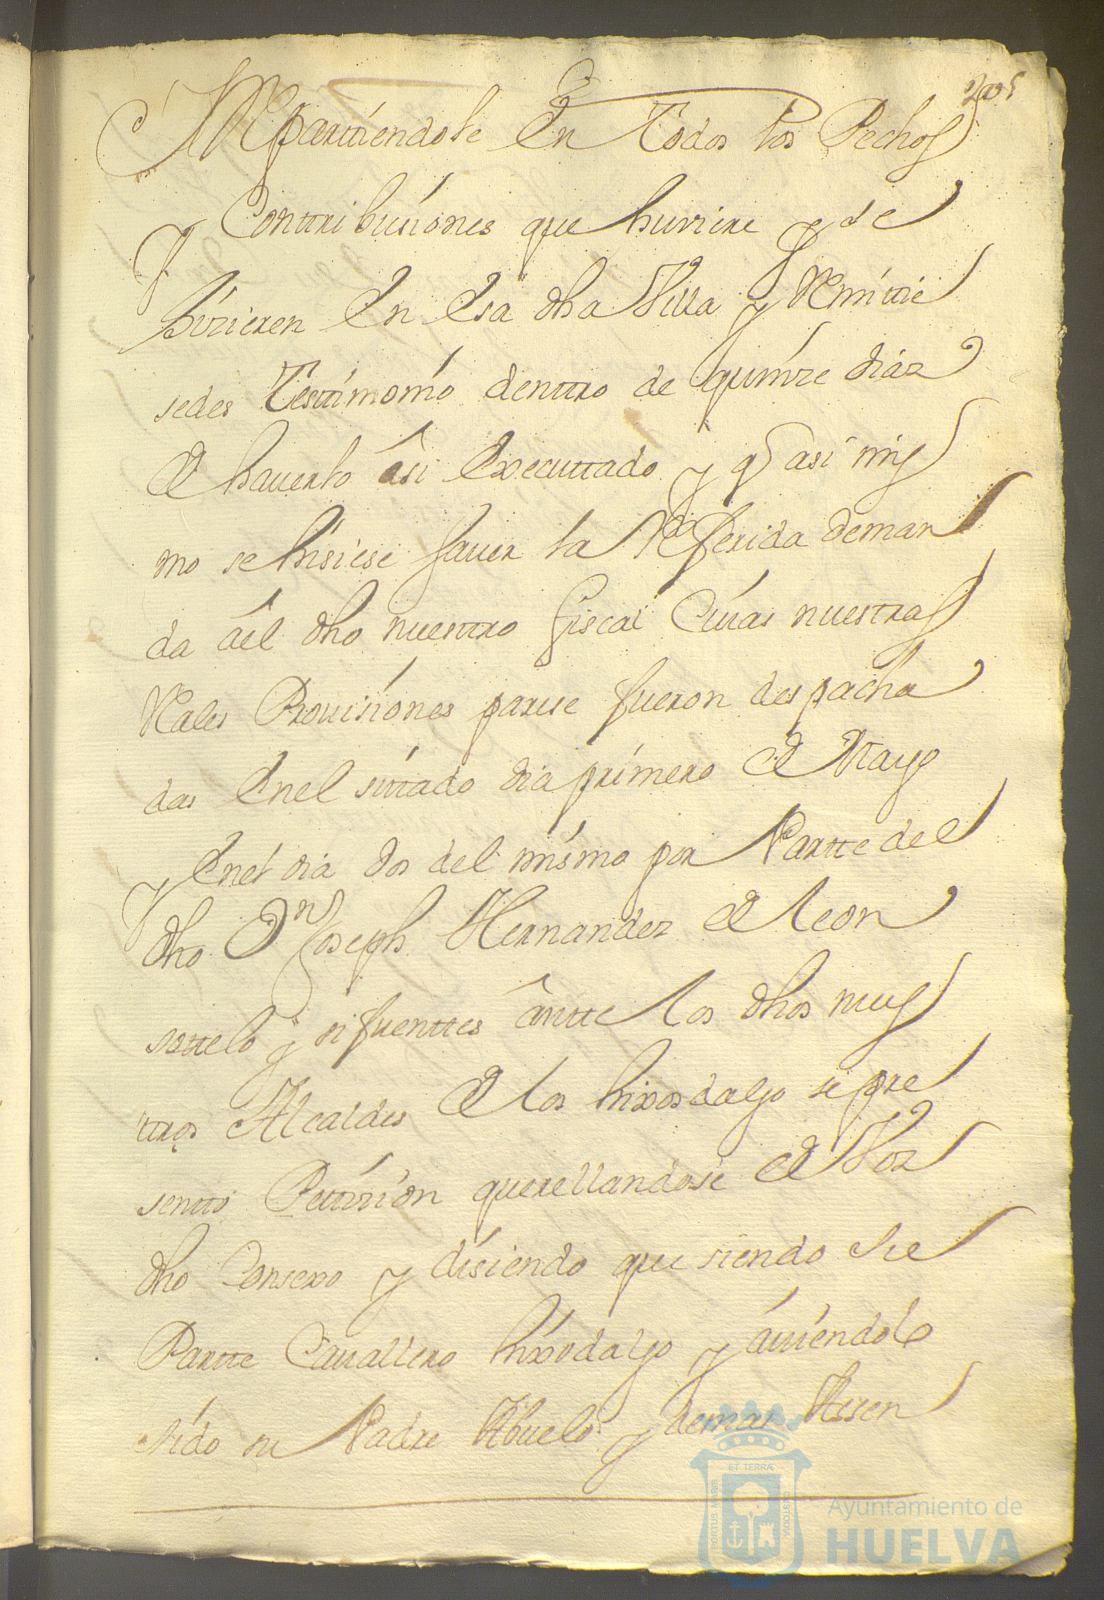 Repartiendole En Todos los Pechos
y Contribusiones que huviere y se
hizieren En Esa dha Villa y Remitie
sedes Testtimonio denttro de quinze diaz
de haverlo âsi Executtado y q asi mis
mo se hisiese saver la Referida deman
da âel dho nuesttro fiscal Cuias nuestras
Rales Provisiones parese fueron despacha
das Enel sittado dia primero de Mayo
y Enel dia dos del mismo por Partte del
dho Dn Joseph Hernandez de Leon
sottelo y sifuenttes ântte los dhos nues
ttros Alcaldes de los hixosdalgo se pre
sentto Pettizion querellandose de Voz
dho Consexo y disiendo que siendo su
Partte Cavallero hixodalgo y aviendolo
sido su Padre Abuelo y demas Assen
ET TERRÆ
PORTUS MARIS
CUSTODIA
Ayuntamiento de
HUELVA